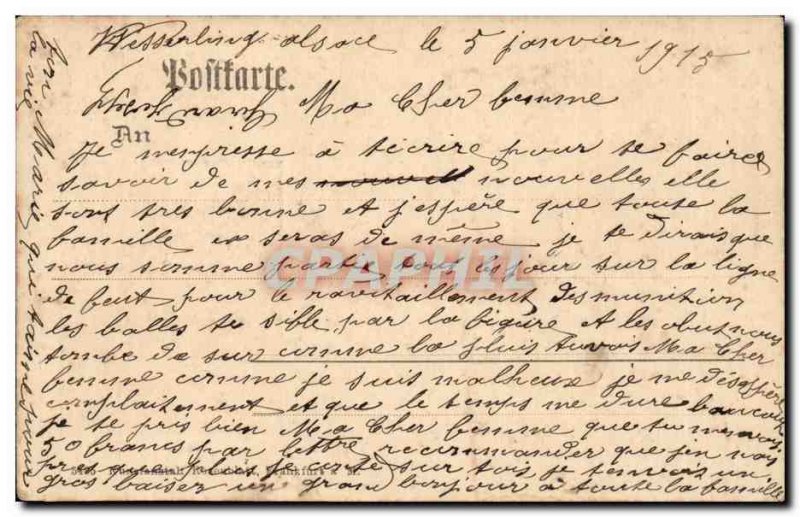 Wesserling alsace le 5 janvier 1915
Postkarte.
Ma Cher femme
An
Je mespresse à técrire pour te faire
savoir de mes nouvelles elle
sont tres bonne et j'espère que toute la
famille en seras de même je te dirais que
nous somme parti tous les jour sur la ligne
de feut pour le ravitaillement des munition
les balles te sifle par la figure et les obut nous
tombe de sur comme la pluis tu vois Ma Cher
femme comme je suis malheux je me désespère
complaitement et que le temps me dure baucoup
je te pris bien Ma Cher femme que tu menvois
50 francs par lettre recommander que j'en nois
sur tois je tenvois un
gros baiser un grand bonjour à toute la famille
Ton Marie qui t'aime pour
la vie
CPAPHIL